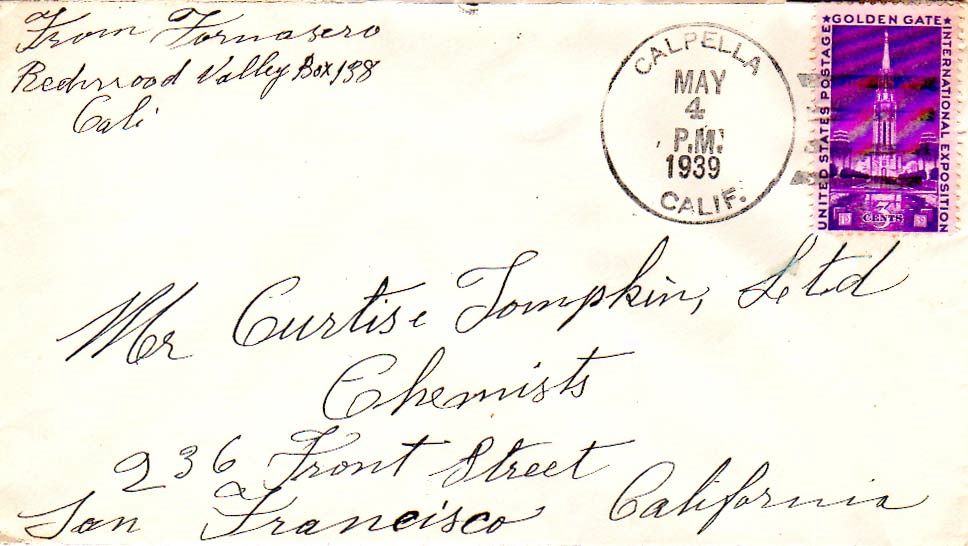 From Fornasero
Redwood Valley Box 138
Cali
CALPELLA
MAY
4
P.M.
1939
CALIF.
GOLDEN GATE
INTERNATIONAL EXPOSITION
UNITED STATES POSTAGE
3
CENTS
19 39
Mr Curtis & Tompkin, Ltd
Chemists
236 Front Street
San Francisco California